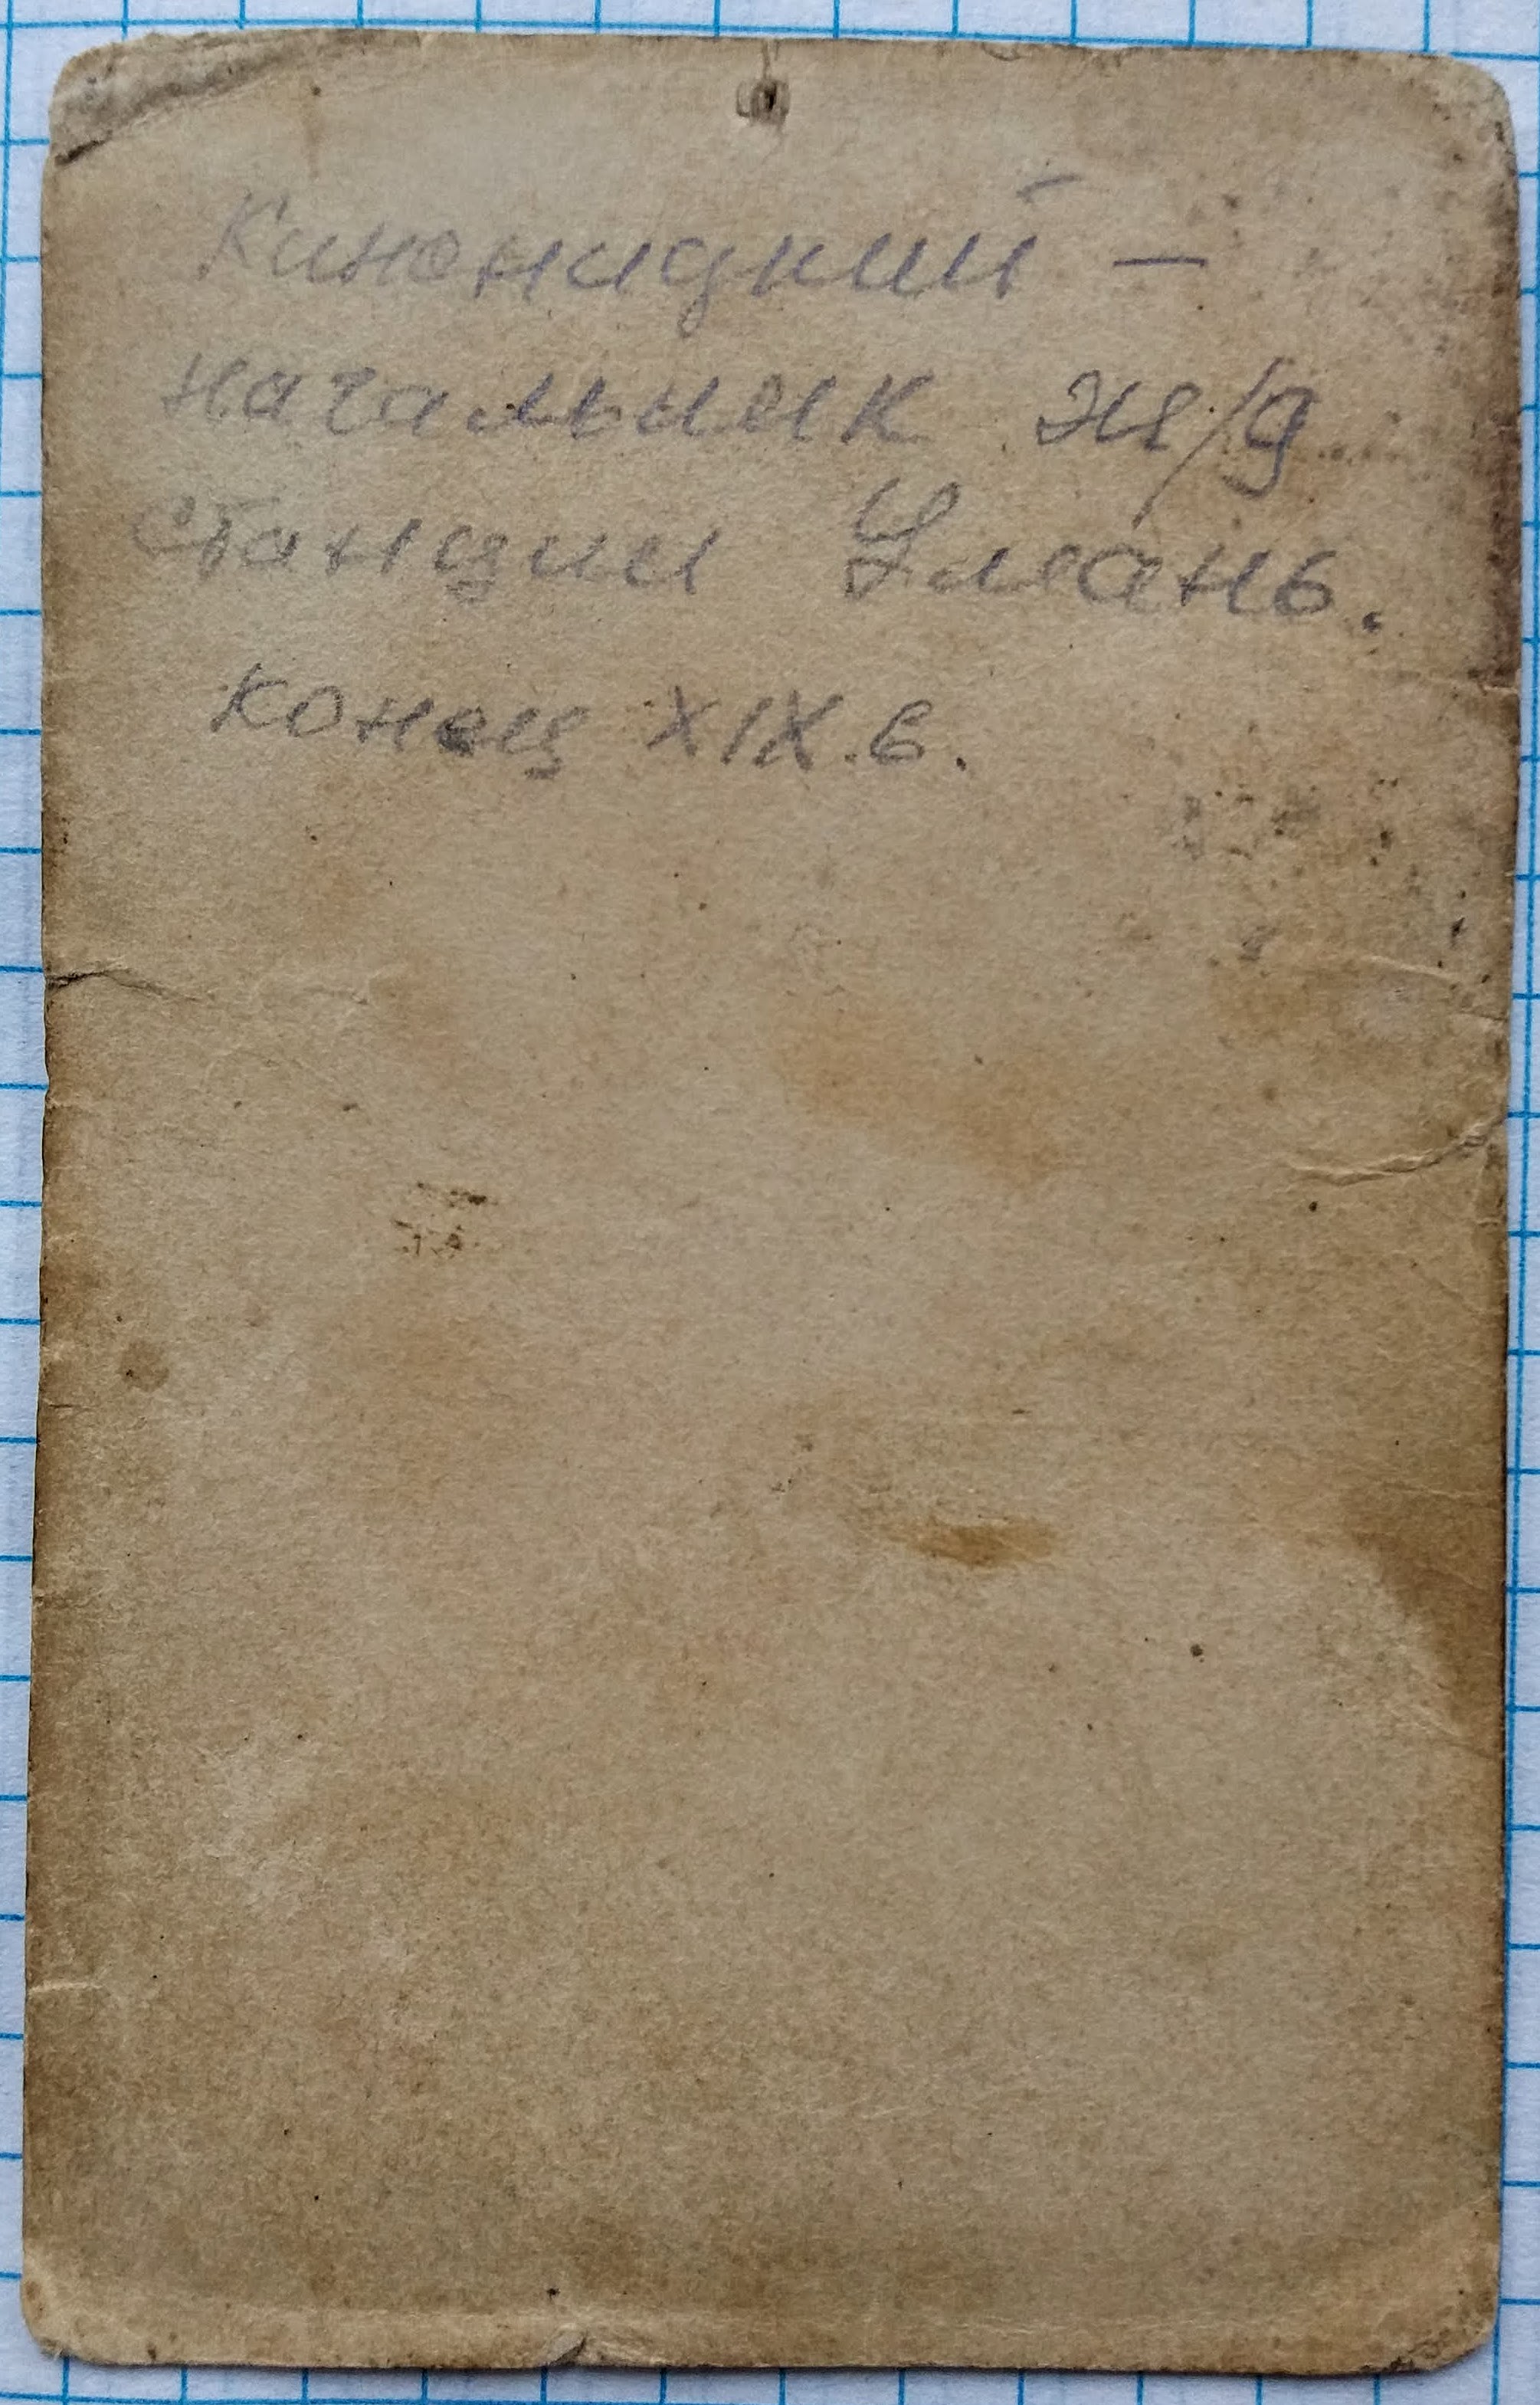 Кинемицкий —
начальник ж/д
станции Умань.
конец XIX.в.